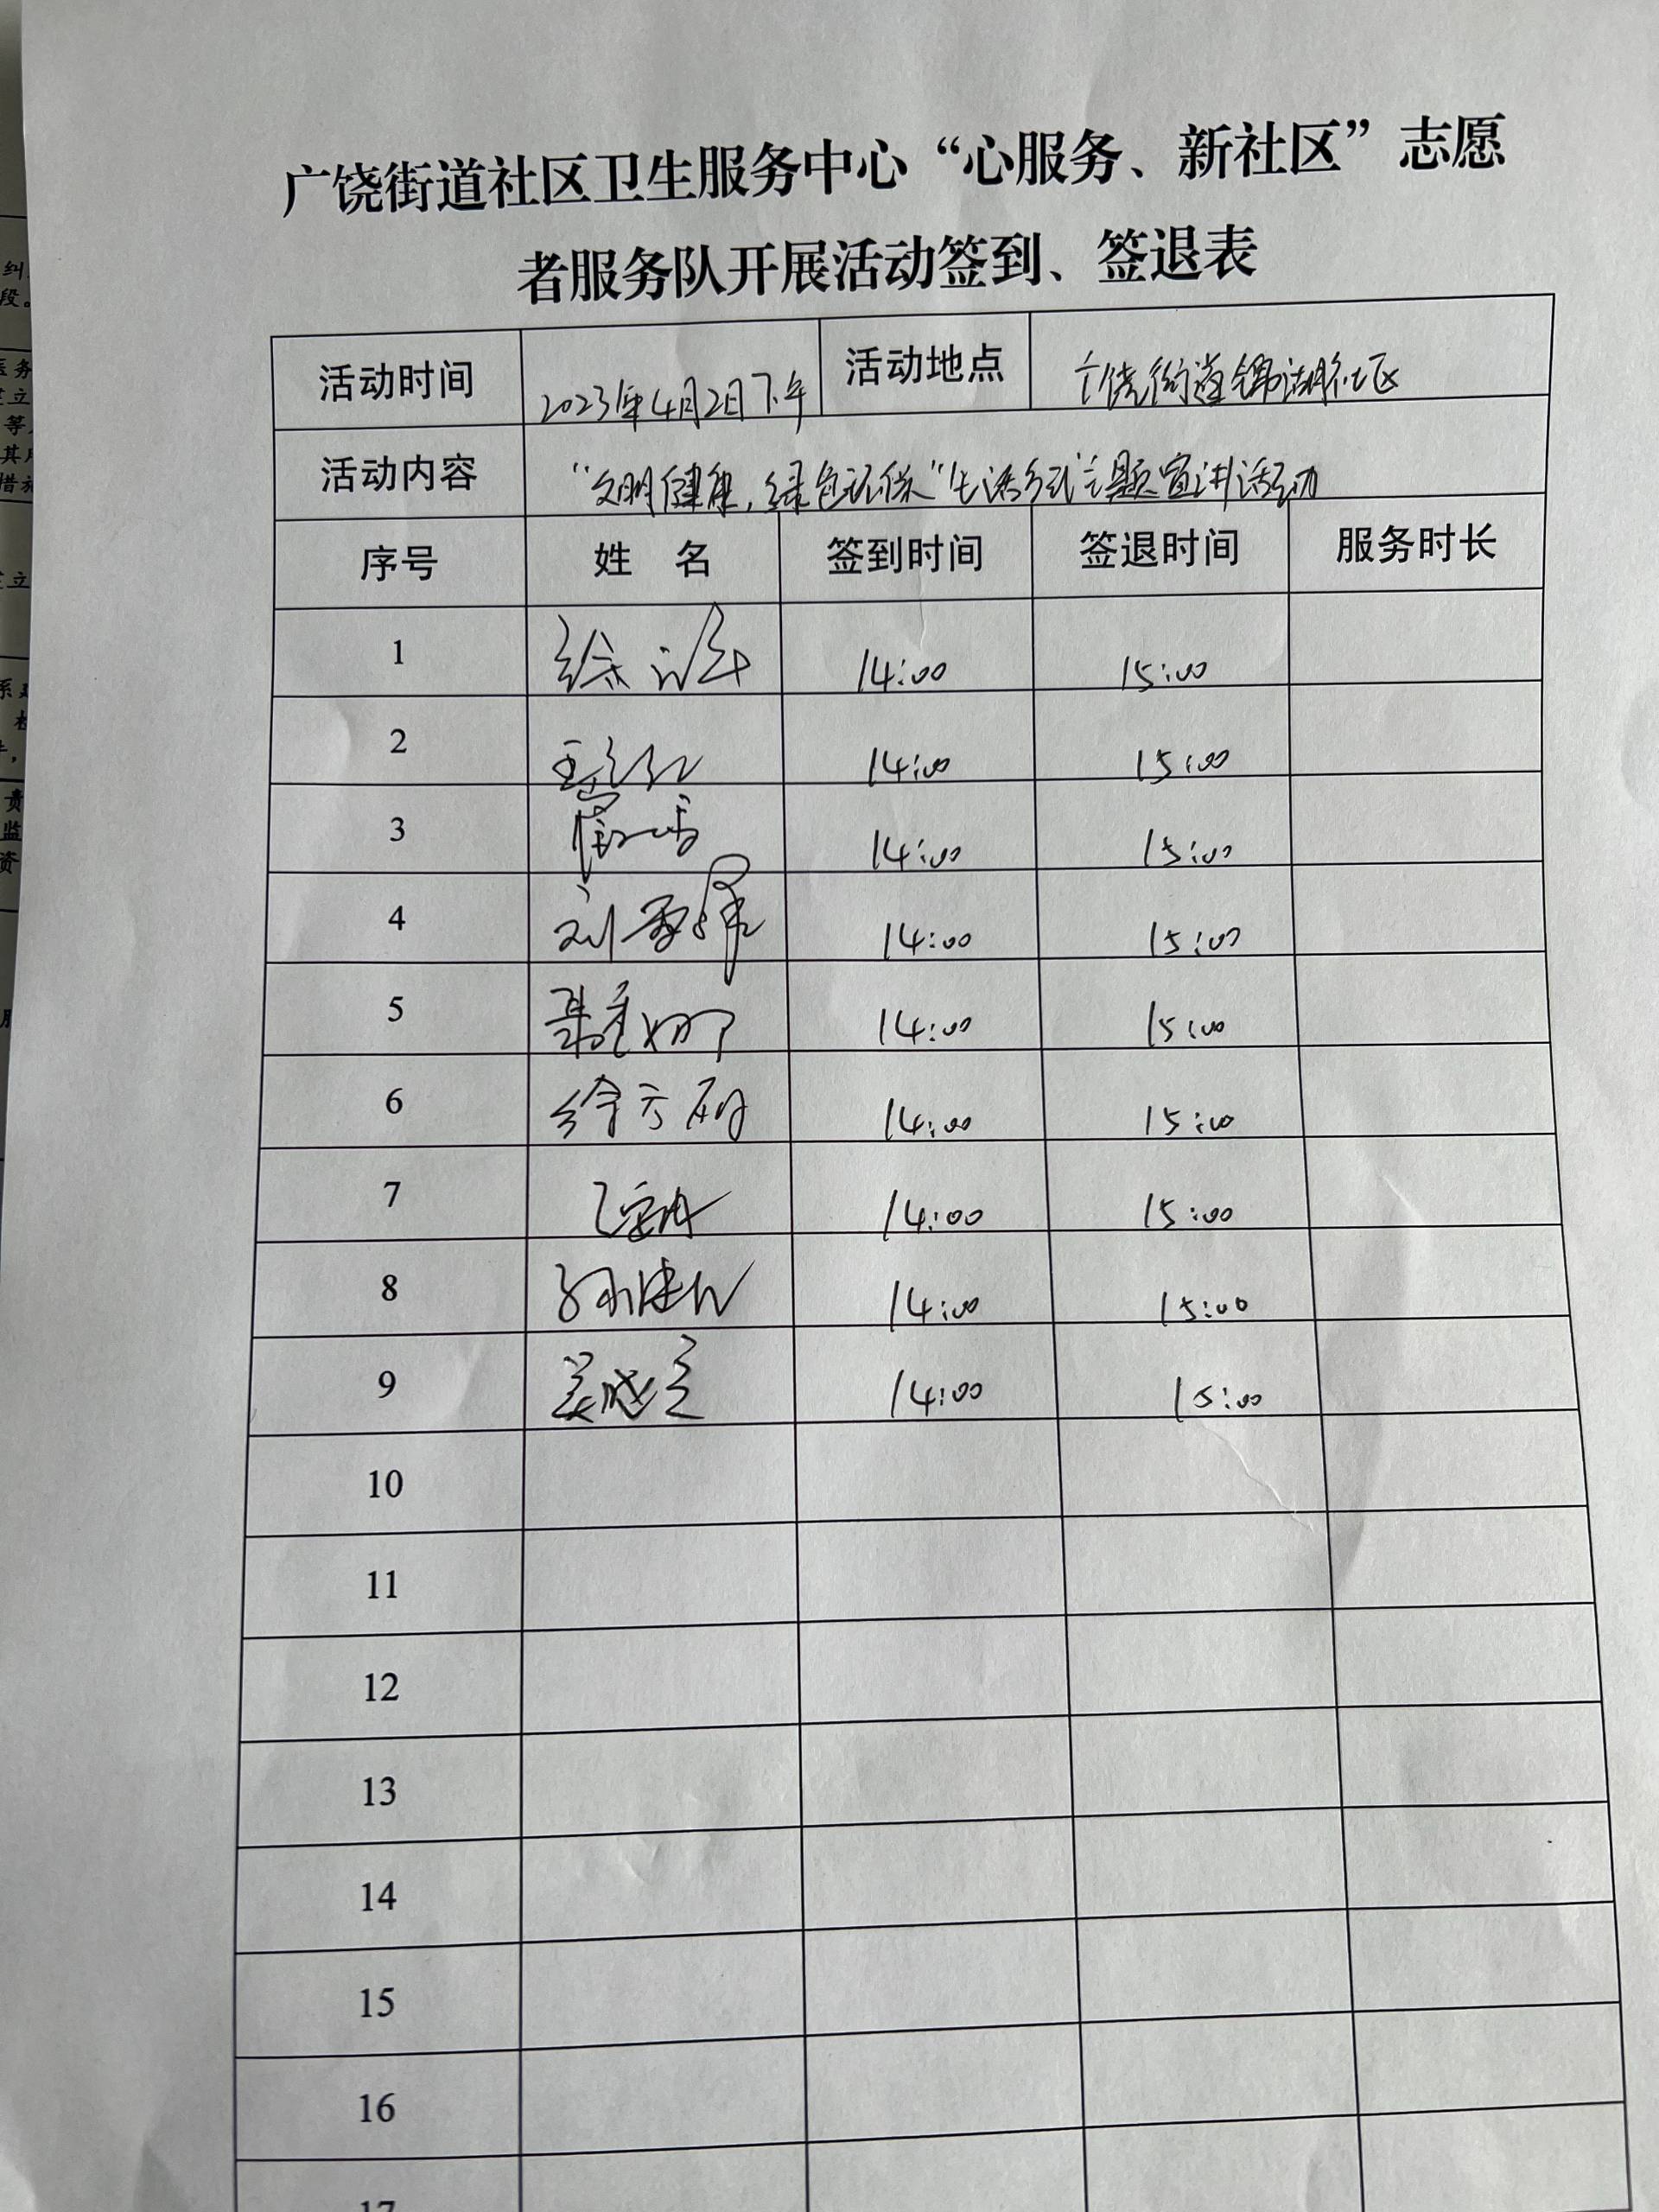 广饶街道社区卫生服务中心“心服务、新社区”志愿
者服务队开展活动签到、签退表
活动时间 2023年4月2日下午 活动地点 广饶街道锦湖社区
活动内容 “文明健康，绿色环保”生活方式主题宣讲活动
序号 姓 名 签到时间 签退时间 服务时长
1 14:00 15:00
2 14:00 15:00
3 14:00 15:00
4 刘 14:00 15:00
5 14:00 15:00
6 徐 14:00 15:00
7 14:00 15:00
8 孙建 14:00 15:00
9 14:00 15:00
10
11
12
13
14
15
16
17